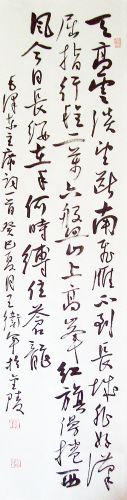 天高雲淡望断南飛雁不到長城非好漢
屈指行程二萬六盤山上高峯紅旗漫捲西
風今日長纓在手何時縛住蒼龍
毛澤東主席詞一首癸巳夏月王衛軍於金陵